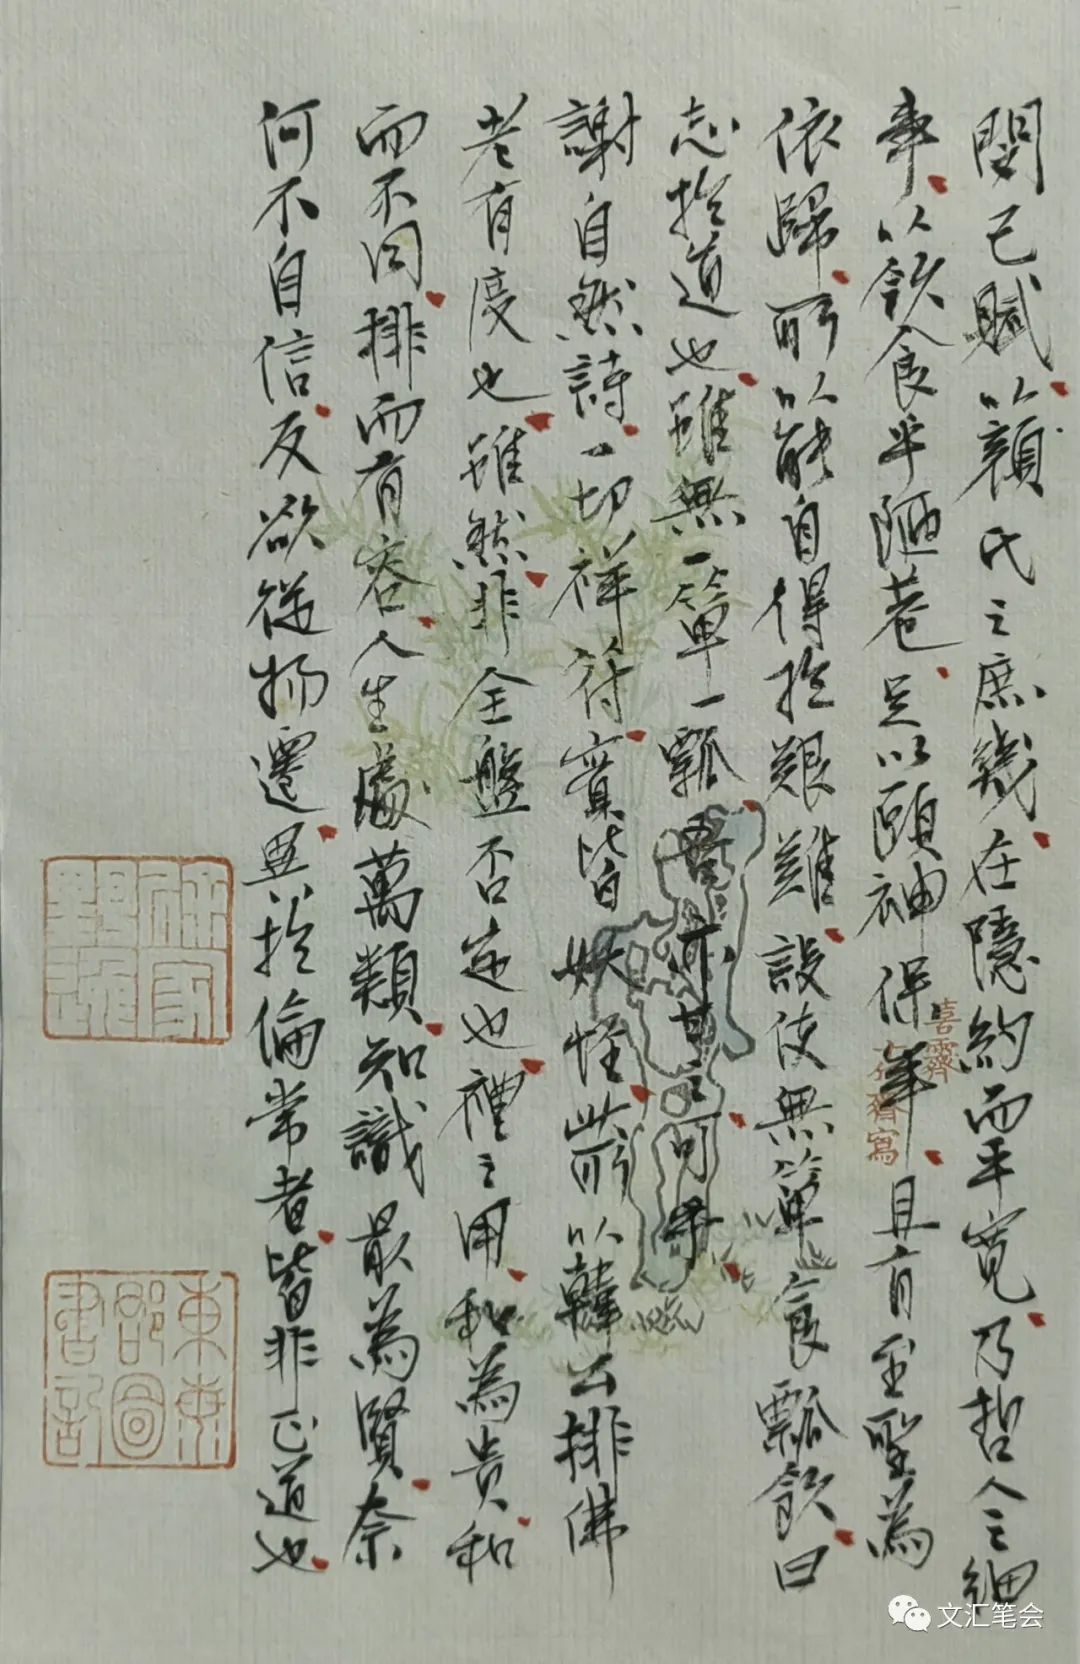 閔己賦以顏氏之庶幾在隱約而平寬乃哲人之細
事以飲食乎陋巷足以頤神保年且有至聖為
依歸所以能自得於艱難設使無簞食瓢飲曰
志於道也雖無一簞一瓢吾亦甘之可乎
謝自然詩一切祥符實皆妖怪耳以韓公排佛
老有度也雖然非全盤否定也禮之用和為貴和
而不同排而有容人生處萬類知識最為賢奈
何不自信反欲從物遷異於倫常者皆非正道也
喜齋
齋寫
東萊
郡圖
書記
文汇笔会